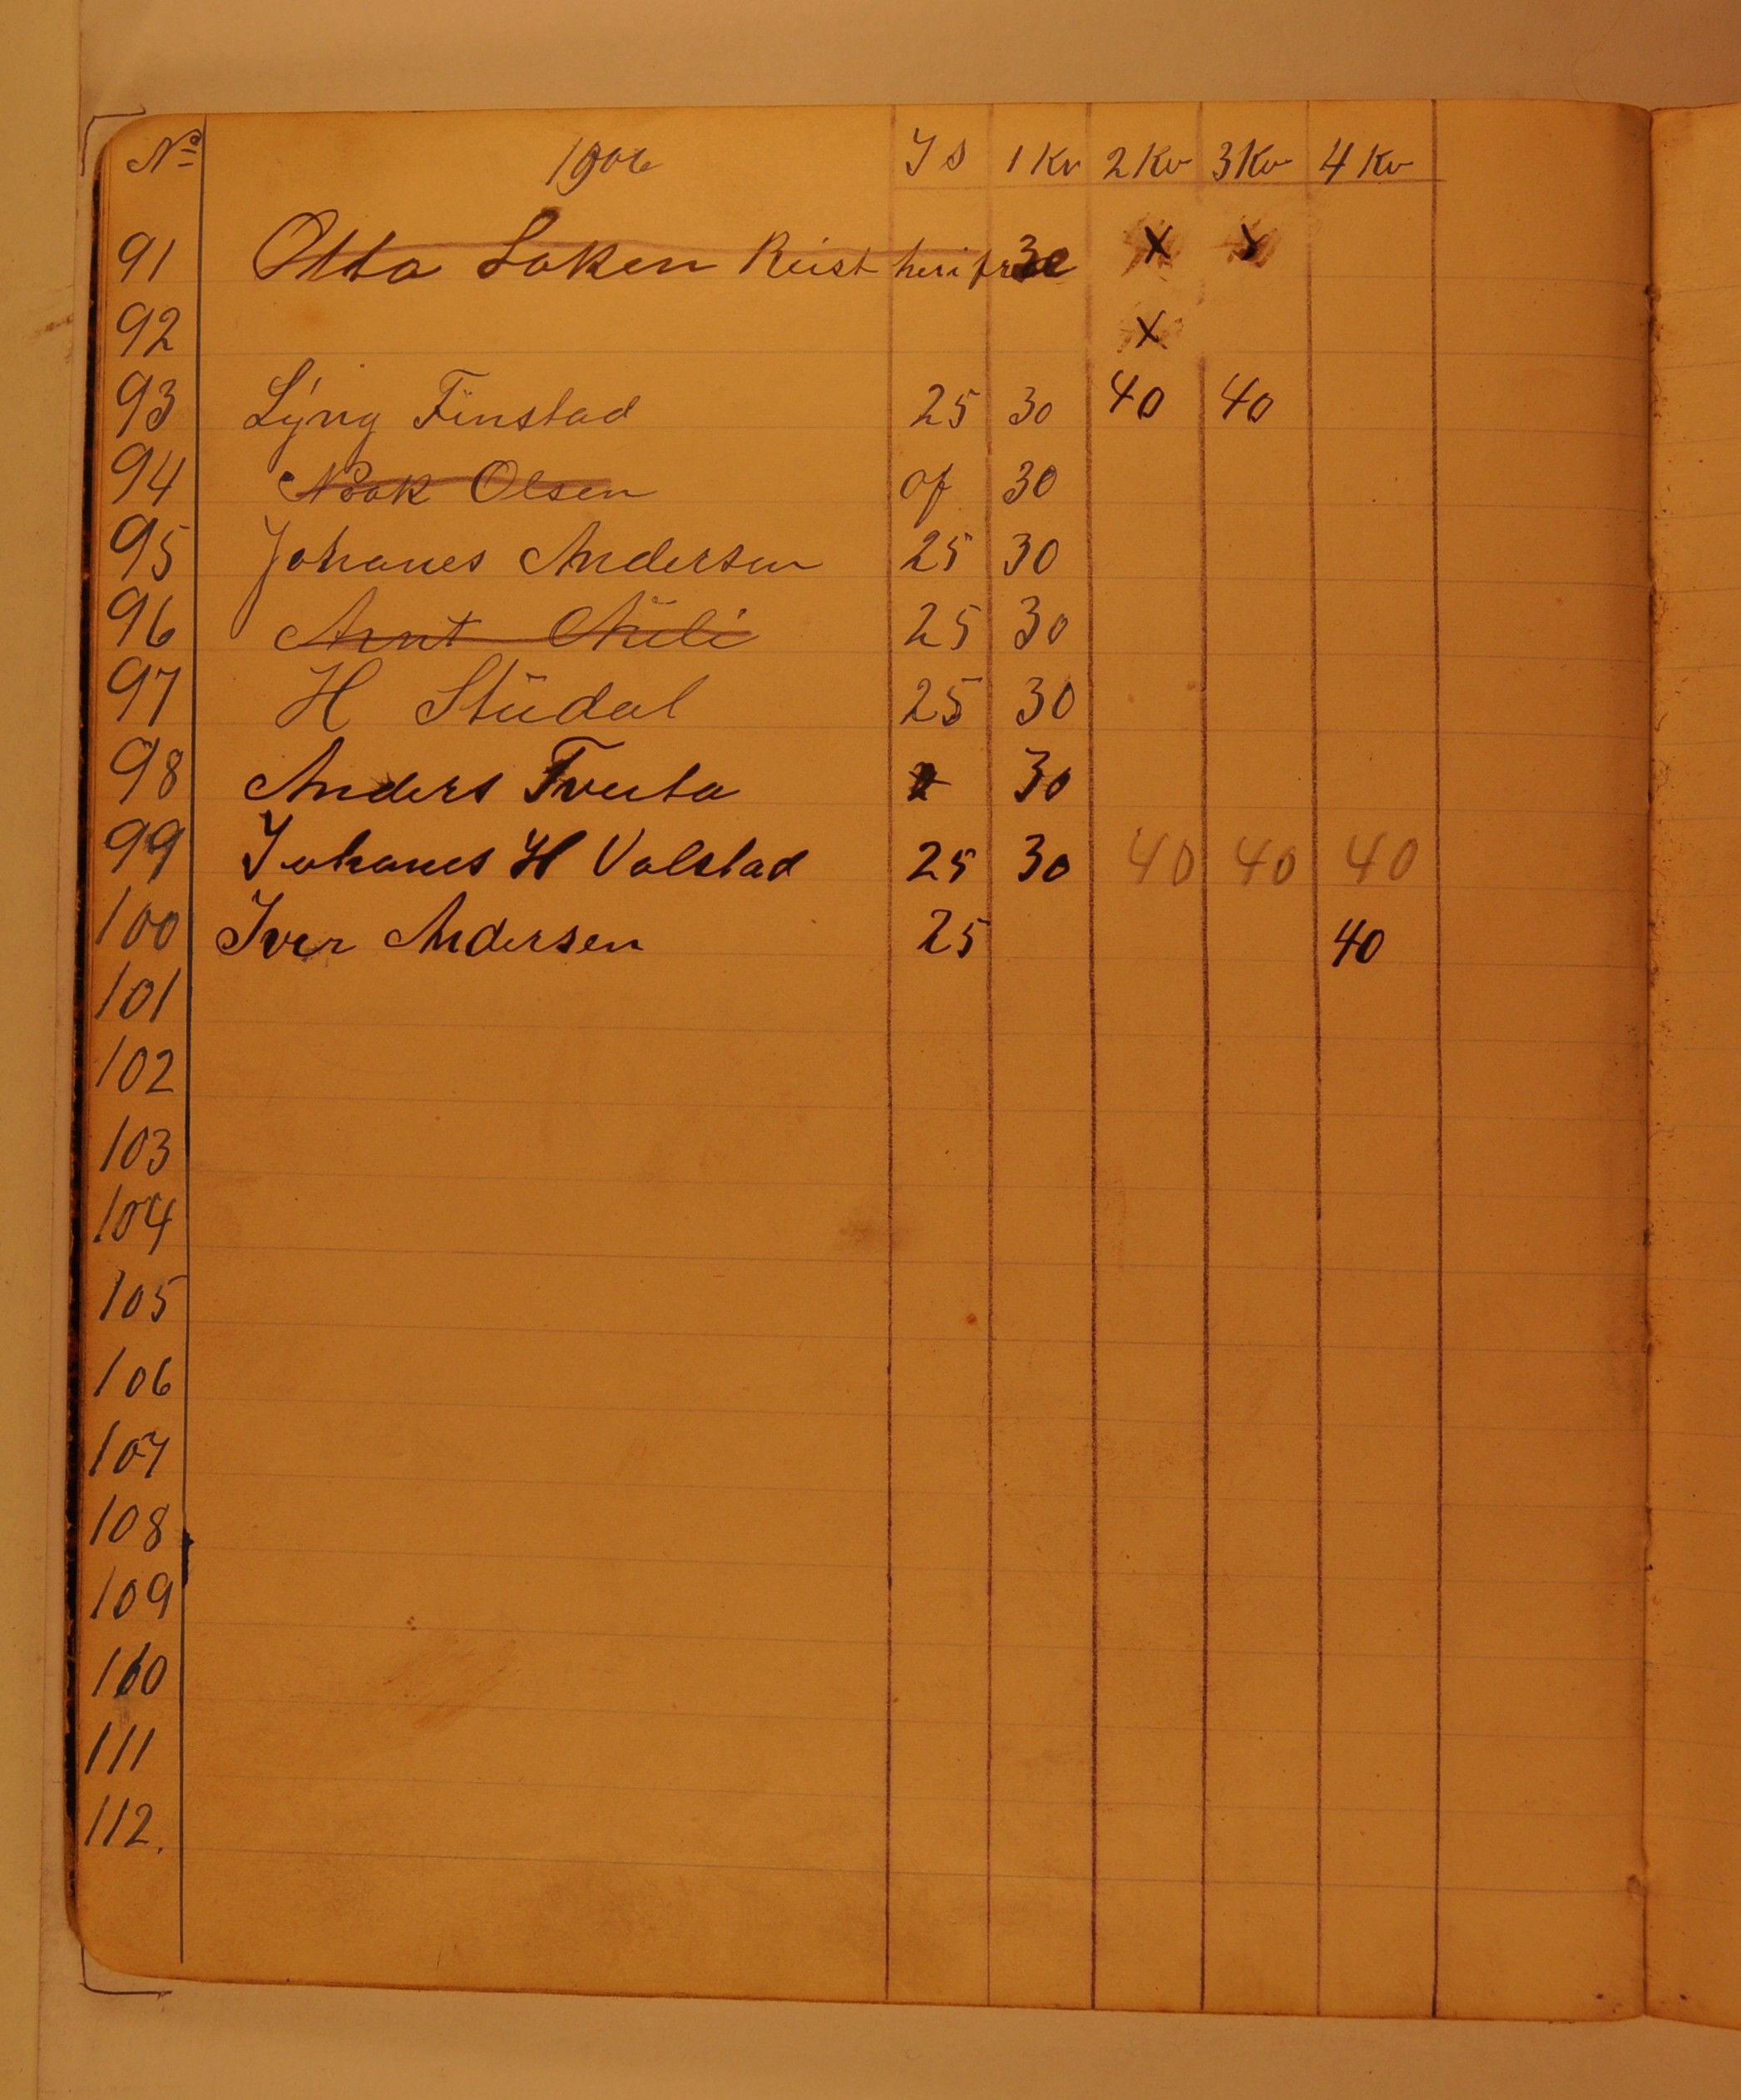 No 1906 I S 1 Kv 2 Kv 3 Kv 4 Kv
91 Otto Loken Reist herifra 30 X X
92 X
93 Lÿng Finstad 25 30 40 40
94 Noak Olsen af 30
95 Johanes Andersen 25 30
96 Arnt 25 30
97 H Stüdal 25 30
98 Anders Tveita 30
99 Johanes H Valstad 25 30 40 40 40
100 Iver Andersen 25 40
101
102
103
104
105
106
107
108
109
110
111
112.